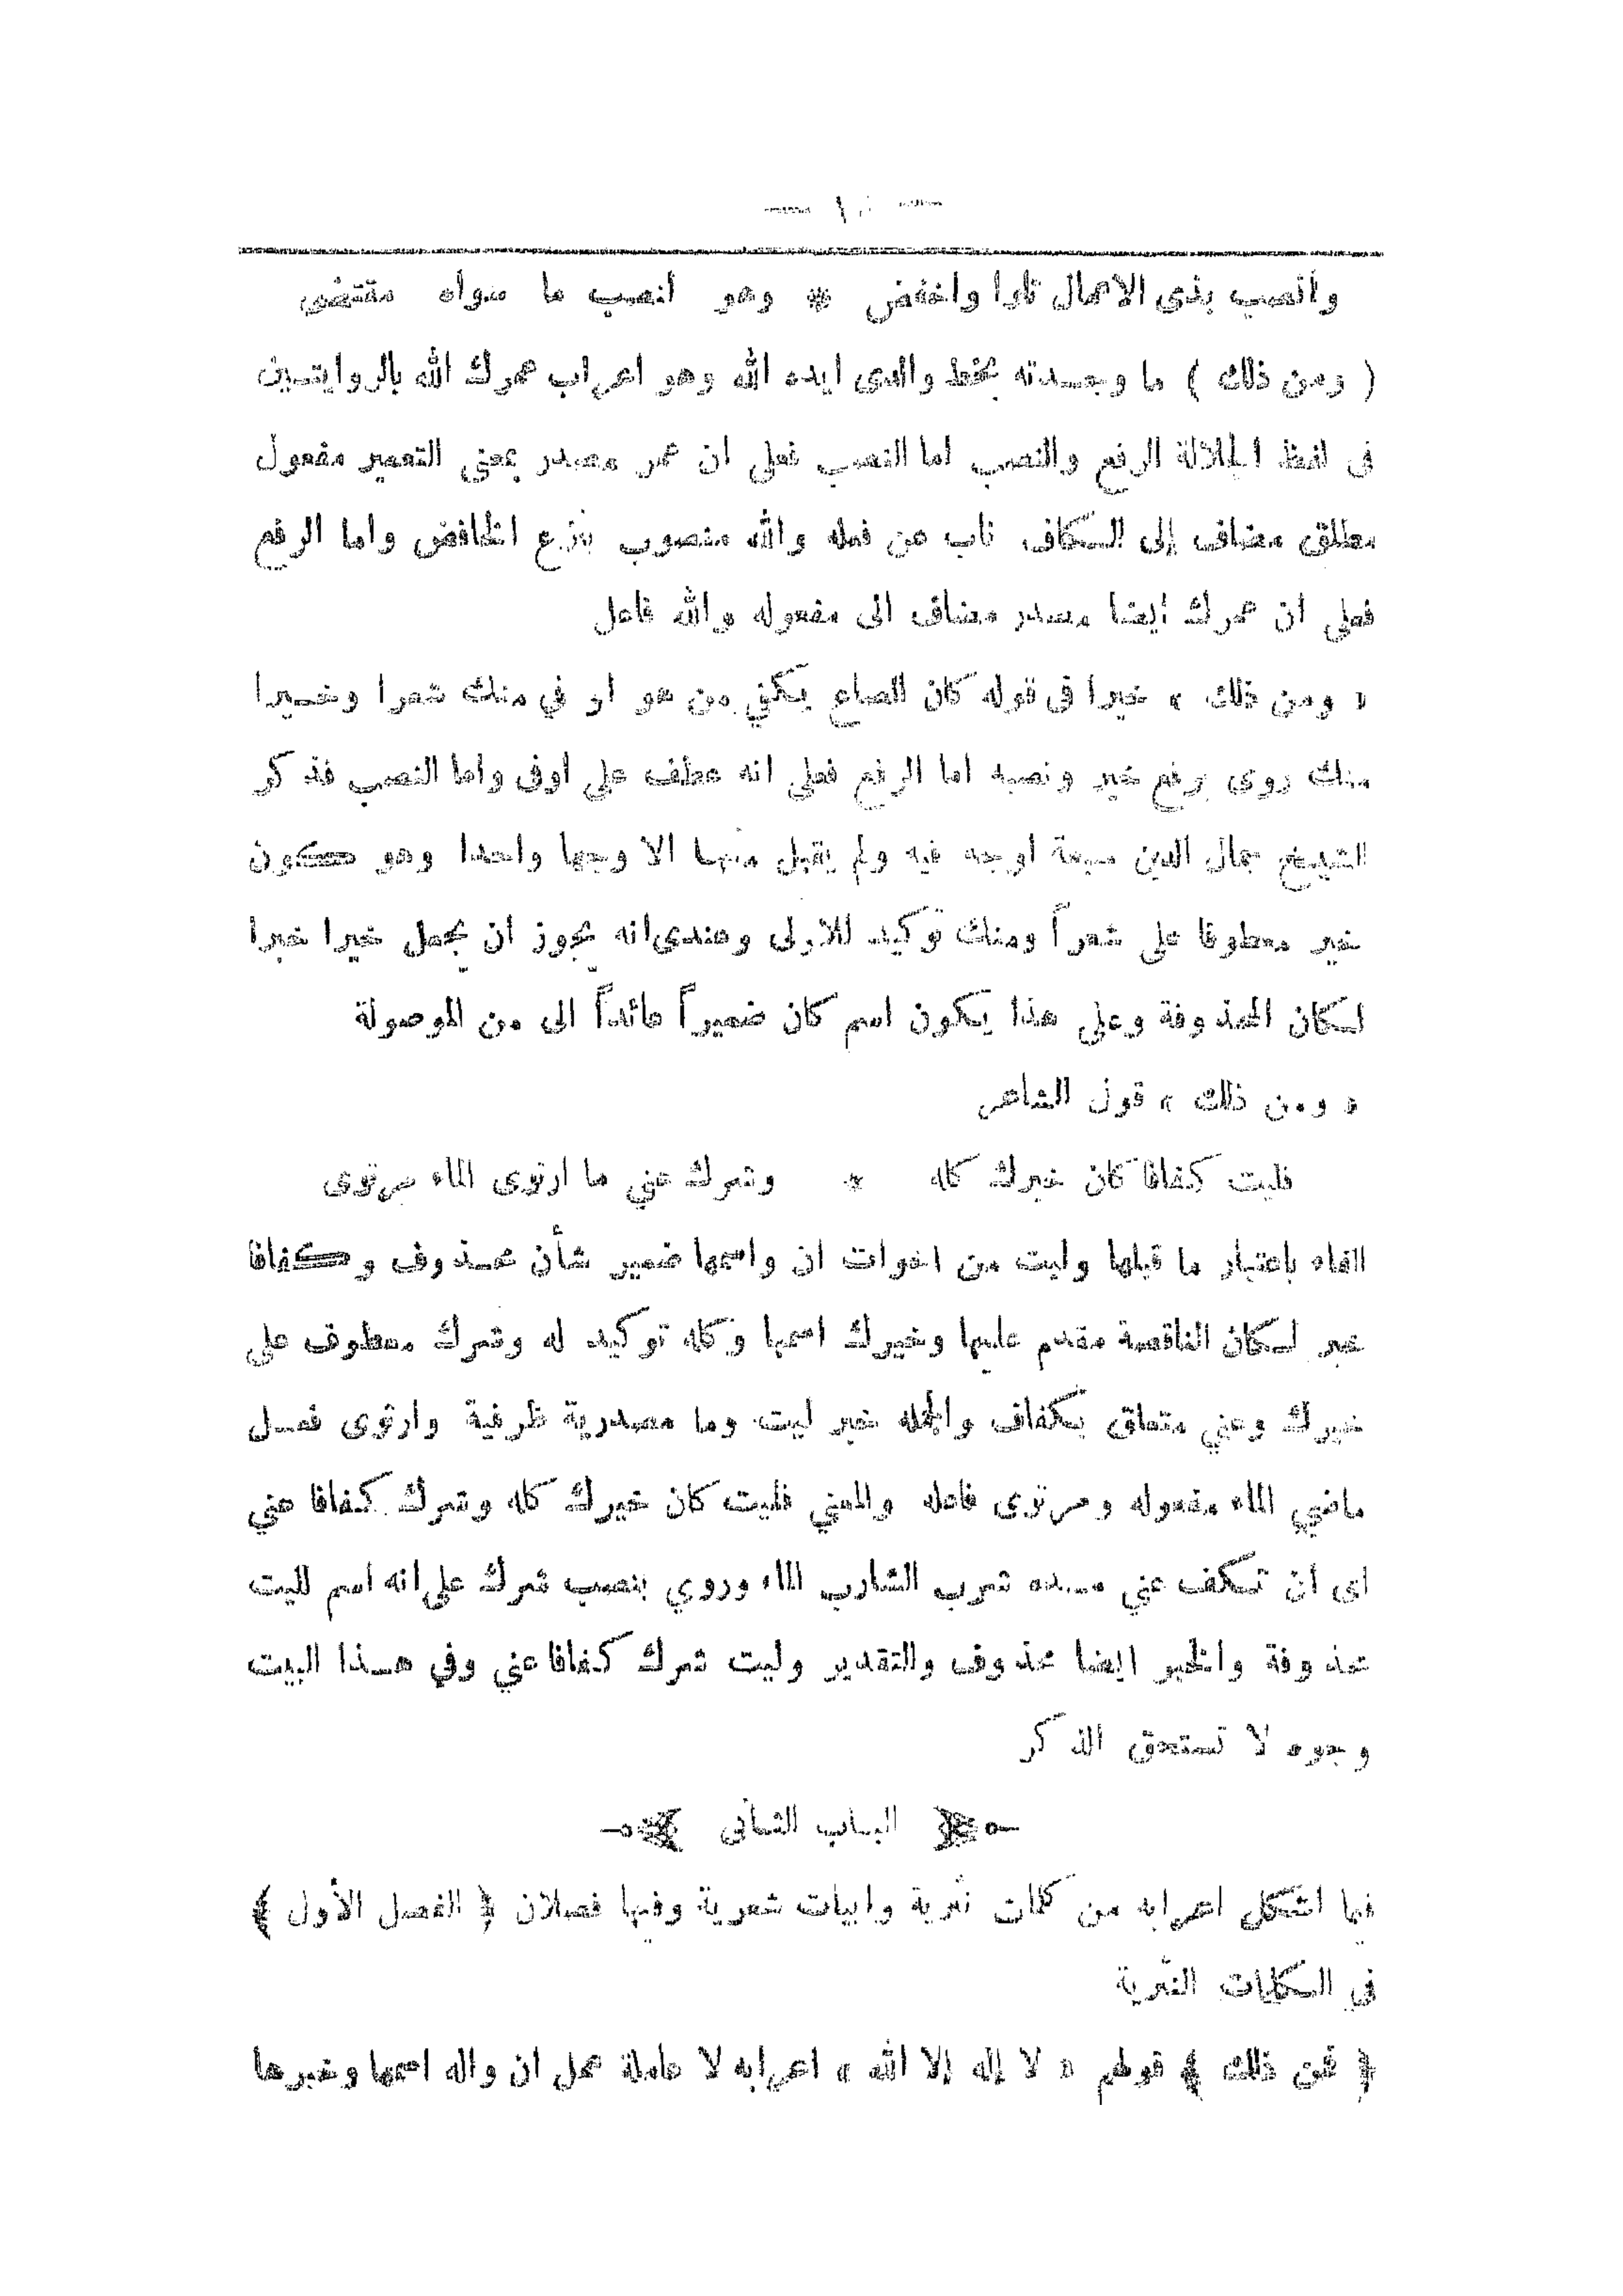 — ١٠ —
وانصب بذى الاعمال تلوا واخفض * وهو انصب ما سواه مقتضى
( ومن ذلك ) ما وجدته بخط والدى ايده الله وهو اعراب عمرك الله بالروايتين
فى لفظ الجلالة الرفع والنصب اما النصب فعلى ان عمر مصدر بمعنى التعمير مفعول
مطلق مضاف إلى الكاف ناب عن فعله والله منصوب بنزع الخافض واما الرفع
فعلى ان عمرك أيضا مصدر مضاف الى مفعوله والله فاعل
« ومن ذلك » خيرا فى قوله كان الصاع يكفي من هو او في منك شعرا وخيرا
منك روى برفع خير ونصبه اما الرفع فعلى انه عطف على اوفى واما النصب فذكر
الشيخ جمال الدين سبعة اوجه فيه ولم يقبل منها الا وجها واحدا وهو كون
خير معطوفا على شعراً ومنك توكيد للاولى وعندى انه يجوز ان يجعل خيرا خبرا
لكان المحذوفة وعلى هذا يكون اسم كان ضميراً عائداً الى من الموصولة
« ومن ذلك » قول الشاعر
فليت كفافا كان خيرك كله * وشرك عني ما ارتوى الماء مرتوى
الفاء باعتبار ما قبلها وليت من اخوات ان واسمها ضمير شأن محذوف وكفافا
خبر لكان الناقصة مقدم عليها وخيرك اسمها وكله توكيد له وشرك معطوف على
خيرك وعني متعلق بكفاف والجمله خبر ليت وما مصدرية ظرفية وارتوى فعل
ماضي الماء مفعوله ومرتوى فاعله والمعني فليت كان خيرك كله وشرك كفافا عني
اى ان تكف عني مده شرب الشارب الماء وروي بنصب شرك على انه اسم لليت
محذوفة والخبر ايضا محذوف والتقدير وليت شرك كفافا عني وفي هذا البيت
وجوه لا تستحق الذكر
الباب الثانى
فيما اشكل اعرابه من كلمات نثرية وابيات شعرية وفيها فصلان ﴿ الفصل الأول ﴾
في الكلمات النثرية
﴿ فمن ذلك ﴾ قولهم « لا إله إلا الله » اعرابه لا عاملة عمل ان واله اسمها وخبرها